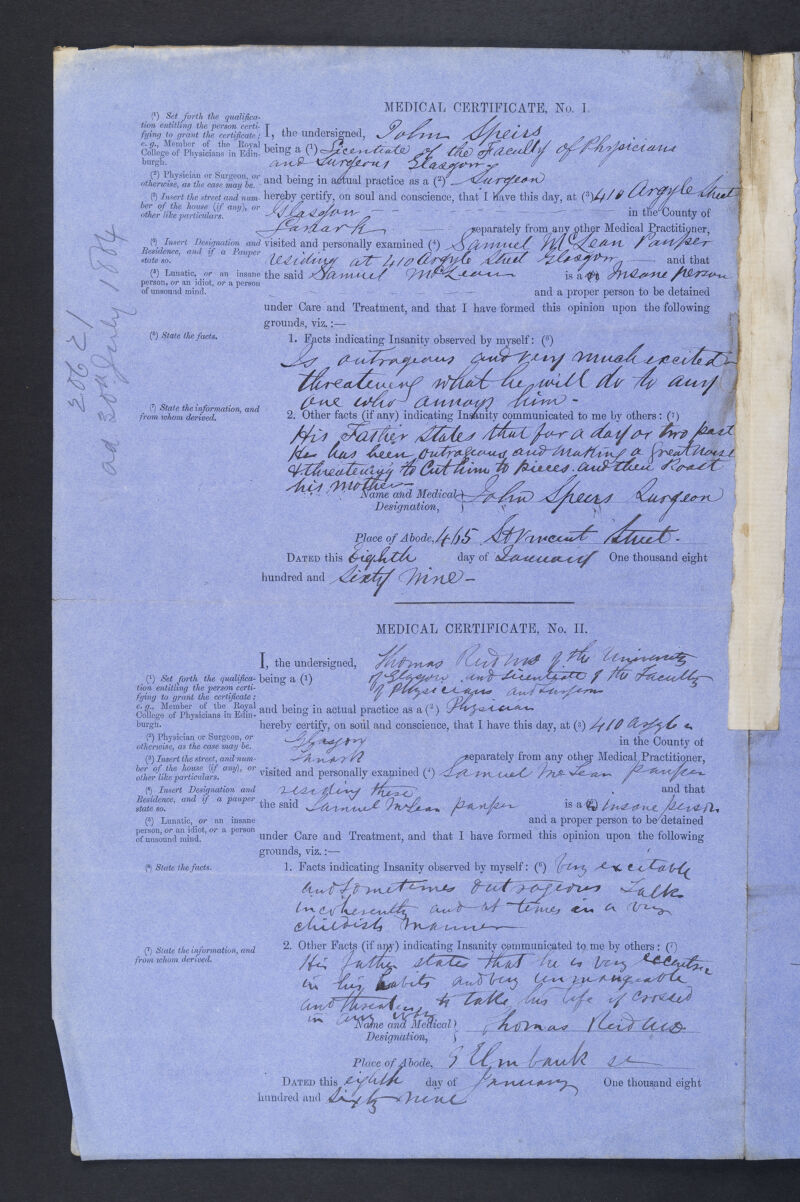 MEDICAL CERTIFICATE, No. I.
(¹) Set forth the qualifica-
tion entitling the person certi-
fying to grant the certificate;
e.g., Member of the Royal
College of Physicians in Edin-
burgh.
I, the undersigned, John Speirs
being a (¹) Licentiate of the Faculty of Physicians
and Surgeons Glasgow
(²) Physician or Surgeon, or
otherwise, as the case may be.
and being in actual practice as a (²) Surgeon
(³) Insert the street and num-
ber of the house (if any), or
other like particulars.
hereby certify, on soul and conscience, that I have this day, at (³) 410 Argyle Street
Glasgow in the County of
Lanark separately from any other Medical Practitioner,
(⁴) Insert Designation and
Residence, and if a Pauper
state so.
visited and personally examined (⁴) Samuel McLean Pauper
residing at 410 Argyle Street Glasgow and that
(⁵) Lunatic, or an insane
person, or an idiot, or a person
of unsound mind.
the said Samuel McLean is a (⁵) Insane person
and a proper person to be detained
under Care and Treatment, and that I have formed this opinion upon the following
grounds, viz.:—
(⁶) State the facts.
1. Facts indicating Insanity observed by myself: (⁶)
Is outrageous and very much excited
threatening what he will do to any
one who annoys him -
(⁷) State the information, and
from whom derived.
2. Other facts (if any) indicating Insanity communicated to me by others: (⁷)
His Father states that for a day or two past
He has been outrageous and making a great noise
& threatening to Cut him to pieces and then Roast
his mother
Name and Medical Designation, John Speirs Surgeon
Place of Abode, 465 St Vincent Street -
DATED this Eighth day of January One thousand eight
hundred and Sixty Nine -
MEDICAL CERTIFICATE, No. II.
I, the undersigned, Thomas Reid MD of the University
(¹) Set forth the qualifica-
tion entitling the person certi-
fying to grant the certificate;
e.g., Member of the Royal
College of Physicians in Edin-
burgh.
being a (¹) of Glasgow and Licentiate of the Faculty
of Physicians and Surgeons
and being in actual practice as a (²) Physician
(²) Physician or Surgeon, or
otherwise, as the case may be.
hereby certify, on soul and conscience, that I have this day, at (³) 410 Argyle
Glasgow in the County of
(³) Insert the street, and num-
ber of the house (if any), or
other like particulars.
Lanark separately from any other Medical Practitioner,
visited and personally examined (⁴) Samuel McLean pauper
(⁴) Insert Designation and
Residence, and if a pauper
state so.
residing there and that
the said Samuel McLean pauper is a (⁵) insane person
(⁵) Lunatic, or an insane
person, or an idiot, or a person
of unsound mind.
and a proper person to be detained
under Care and Treatment, and that I have formed this opinion upon the following
grounds, viz.:—
(⁶) State the facts.
1. Facts indicating Insanity observed by myself: (⁶) Very excitable
and sometimes outrageous Talks
incoherently and at times in a very
childish manner
(⁷) State the information, and
from whom derived.
2. Other Facts (if any) indicating Insanity communicated to me by others: (⁷)
His father states that he is very eccentric
in his habits and very unmanageable
and threatens to take his life if crossed
in any way
Name and Medical Designation, Thomas Reid MD
Place of Abode, Elmbank st
DATED this eighth day of January One thousand eight
hundred and Sixty nine
ad 30th July 1884